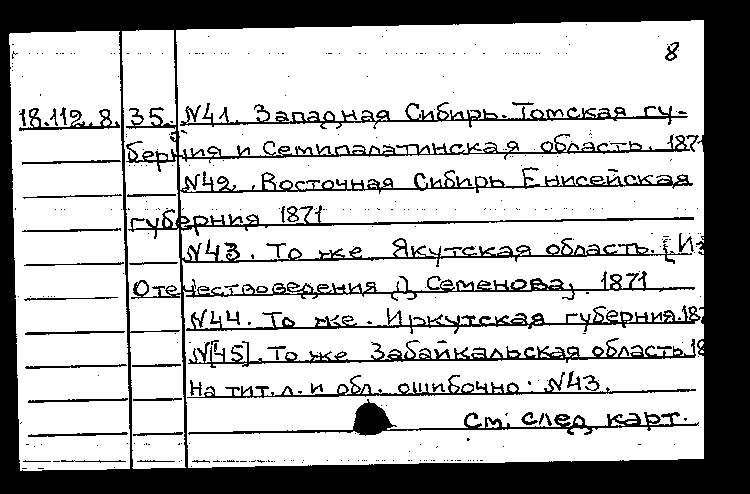 8
18.112.8.35. №41. Западная Сибирь. Томская гу-
берния и Семипалатинская область. 1871
№42. Восточная Сибирь Енисейская
губерния. 1871
№43. То же Якутская область. [Из
Отечествоведения Д. Семенова]. 1871.
№44. То же. Иркутская губерния. 187
№[45]. То же Забайкальская область. 18
На тит. л. и обл. ошибочно: №43.
См. след. карт.